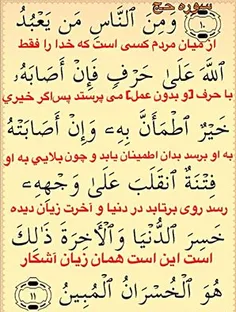 سوره حج
۱۰ وَمِنَ ٱلنَّاسِ مَن يَعْبُدُ
از میان مردم کسی است که خدا را فقط
ٱللَّهَ عَلَىٰ حَرْفٍ فَإِنْ أَصَابَهُۥ
با حرف (و بدون عمل) می پرستد پس اگر خیری
خَيْرٌ ٱطْمَأَنَّ بِهِۦ وَإِنْ أَصَابَتْهُ
به او برسد بدان اطمینان یابد و چون بلایی به او
فِتْنَةٌ ٱنقَلَبَ عَلَىٰ وَجْهِهِۦ
رسد روی برتابد در دنیا و آخرت زیان دیده
خَسِرَ ٱلدُّنْيَا وَٱلْأَخِرَةَ ذَٰلِكَ
است این است همان زیان آشکار
هُوَ ٱلْخُسْرَانُ ٱلْمُبِينُ ۱۱